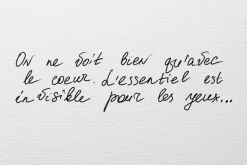 On ne voit bien qu'avec
le coeur. L'essentiel est
invisible pour les yeux...